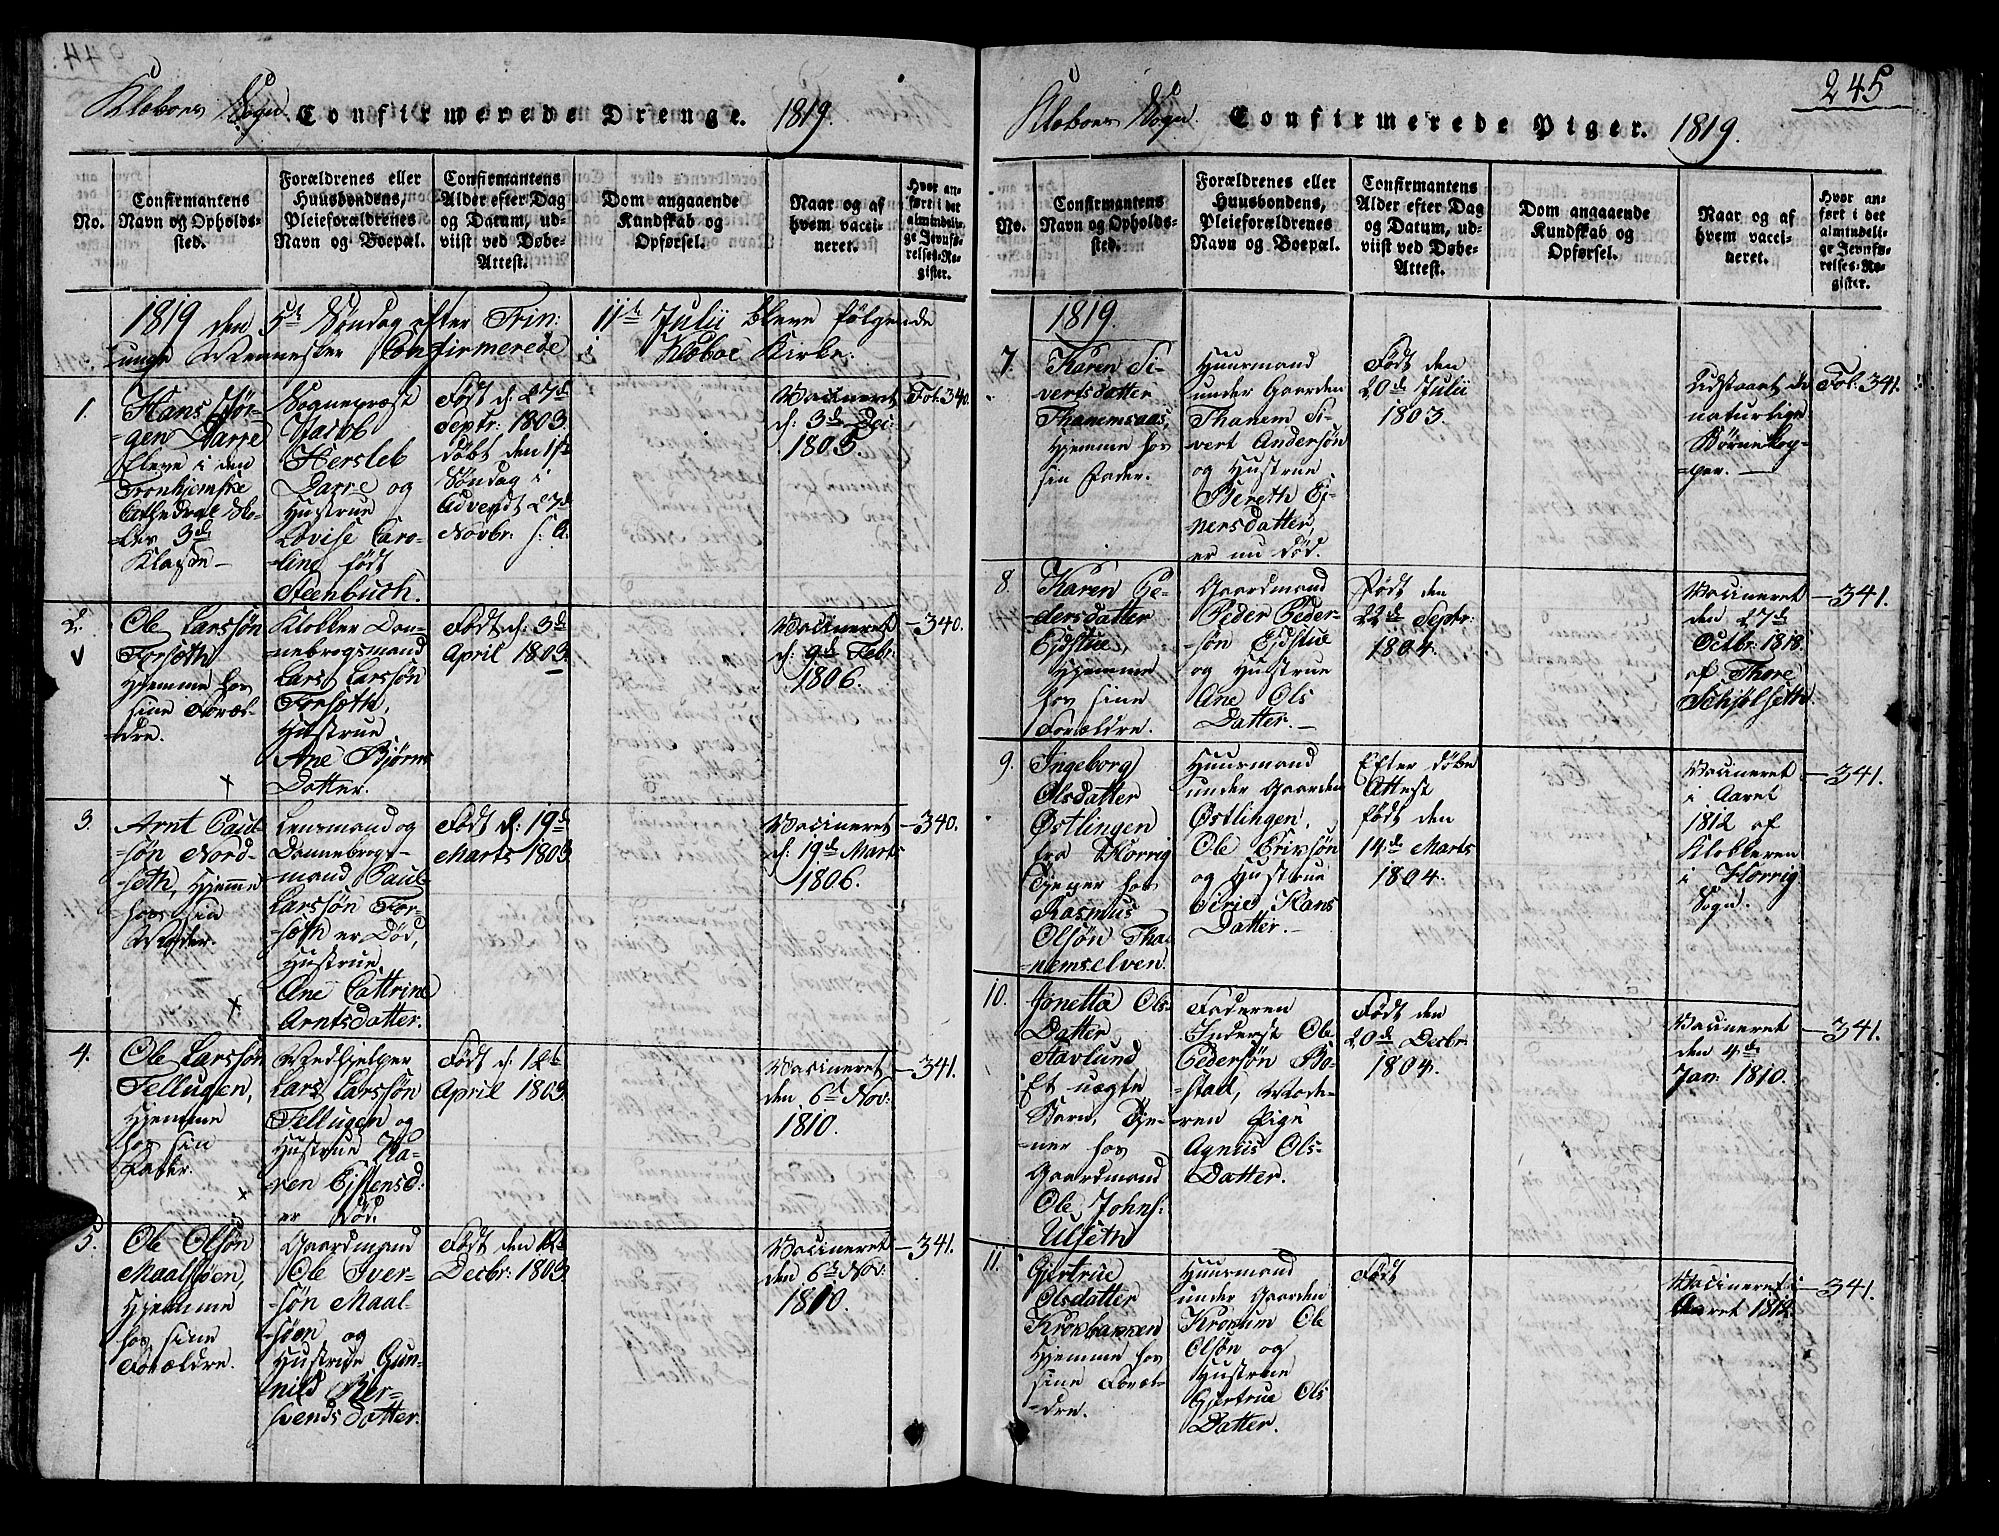 Klæboes Sogn. Confirmerede Drenge. 1819.
No.
Confirmantens
Navn og Opholds-
sted.
Forældrenes eller
Huusbondens,
Pleieforældrenes
Navn og Boepæl.
Confirmantens
Alder efter Dag
og Datum, ud-
viist ved Døbe-
Attest.
Dom angaaende
Kundskab og
Opførsel.
Naar og af
hvem vacci-
neret.
Hvor an-
ført i det
almindeli-
ge Jevnfø-
relses-Re-
gister.
1819 den 5te Søndag efter Trin: 11te Julii bleve følgende
unge Mennesker Confirmerede i Klæboe Kirke:
1.
Hans Jør-
gen Darre
Eleve i den
Tronhjemske
Cathedral Sko-
les 3de
Klasse
Sognepræst
Jacob
Hersleb
Darre og
Hustrue
Lovise Caro-
line født
Steenbuch.
Født d: 27de
Septr: 1803.
døbt den 1ste
Søndag i
Advendt 27de
Novbr: s: A:
Vaccineret
d: 3de Dec:
1805.
Fol: 340.
2.
Ole Larssøn
Forsæth
hjemme hos
sine Foræl-
dre.
Klokker Dan-
nebrogsmand
Lars Larssøn
Forsæth,
Hustrue
Ane Bjørns
Datter.
Født d: 3de
April 1803.
Vaccineret
d: 9de Febr:
1806.
340.
3.
Arnt Paul-
søn Nord-
seth, hjemme
hos sin
Moder.
Lensmand og
Dannebrogs-
mand Paul
Larssøn For-
sæth er Død,
Hustrue
Ane Cattrine
Arntsdatter.
Født d: 19de
Marts 1803.
Vaccineret
d: 19de Marts
1806.
340.
4.
Ole Larssøn
Tellugen,
hjemme
hos sin
Fader.
Medhjelper
Lars Larssøn
Tellugen og
Hustrue Ka-
ren Estensd:
er Død.
Født d: 12te
April 1803
Vaccineret
den 6te Nov:
1810.
341.
5.
Ole Olsøn
Maalsøen,
hjemme
hos sine
Forældre.
Gaardmand
Ole Iver-
søn Maal-
søen og
Hustrue Gun-
nild Ber-
svendsdatter.
Født den 12te
Decbr: 1803
Vaccineret
den 6te Nov:
1810.
341.
245
Klæboes Sogn. Confirmerede Piger. 1819.
No.
Confirmantens
Navn og Opholds-
sted.
Forældrenes eller
Huusbondens,
Pleieforældrenes
Navn og Boepæl.
Confirmantens
Alder efter Dag
og Datum, ud-
viist ved Døbe-
Attest.
Dom angaaende
Kundskab og
Opførsel.
Naar og af
hvem vacci-
neret.
Hvor an-
ført i det
almindeli-
ge Jevnfø-
relses-Re-
gister.
1819.
7.
Karen Si-
vertsdatter
Thanemsaas,
hjemme hos
sin Fader.
Huusmand
under Gaarden
Thanem Si-
vert Andersøn
og Hustrue
Bereth Ei-
nersdatter,
er nu død.
Født den
20de Julii
1803.
Udstaaet de
naturlige
Børnekop-
per.
Fol: 341.
8.
Karen Pe-
dersdatter
Ejdstue,
hjemme
hos sine
Forældre.
Gaardmand
Peder Peder-
søn Ejdstue
og Hustrue
Ane Ols
Datter.
Født den
22de Septr:
1804.
Vaccineret
den 27de
Octbr: 1818.
af Thore
Schjølseth.
341.
9.
Ingeborg
Olsdatter
Østlingen
fra Horrig
tjener hos
Rasmus
Olsøn Tha-
nemselven.
Huusmand
under Gaarden
Østlingen,
Ole Erichsøn
og Hustrue
Siri Hans
Datter.
Efter døbe
Attest
født den
14de Marts
1804.
Vaccineret
i Aaret
1812 af
Klokkeren
i Horrig
Sogn.
341.
10.
Jonetta Ols-
Datter
Stavlund
Et uægte
Barn, Tje-
ner hos
Gaardmand
Ole Johns:
Ulseth
Faderen
Inderst Ole
Pedersøn Bo-
stad, Mode-
ren Pige
Agniis Ols-
Datter.
Født den
20de Decbr:
1804.
Vaccineret
den 4de
Jan: 1810.
341.
11.
Gjertrue
Olsdatter
Krokbakken
hjemme hos
sine Foræl-
dre.
Huusmand
under Gaarden
Krokum Ole
Olsøn og
Hustrue
Gjertrue Ols
Datter.
Født
Vaccineret i
Aaret 1812.
341.